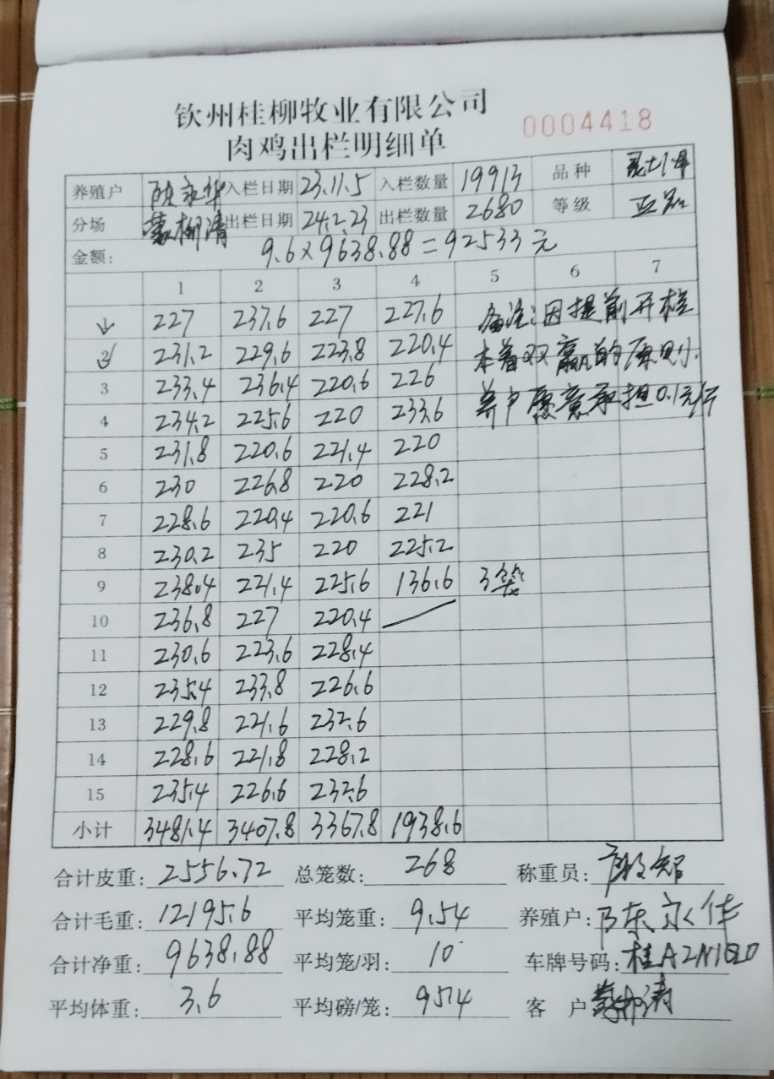 钦州桂柳牧业有限公司
0004418
肉鸡出栏明细单
养殖户 陈永华 入栏日期 23.11.5 入栏数量 19913 品种
分场 出栏日期 24.2.23 出栏数量 2680 等级
金额: 9.6×9638.88=92533元
1 2 3 4 5 6 7
1 227 237.6 227 227.6 备注:因提前开栏
2 231.2 229.6 223.8 220.4 本着双赢的原则
3 233.4 236.4 220.6 226
4 234.2 225.6 220 233.6 养户愿意承担0.1元/斤
5 231.8 220.6 221.4 220
6 230 226.8 220 228.2
7 228.6 220.4 220.6 221
8 230.2 235 220 225.2
9 238.4 221.4 225.6 136.6 3袋
10 236.8 227 220.4
11 230.6 223.6 228.4
12 235.4 233.8 226.6
13 229.8 221.6 232.6
14 228.6 221.8 228.2
15 235.4 226.6 232.6
小计 3481.4 3407.8 3367.8 1938.6
合计皮重: 2556.72 总笼数: 268 称重员:
合计毛重: 12195.6 平均笼重: 9.54 养殖户: 陈永华
合计净重: 9638.88 平均笼/羽: 10 车牌号码: 桂
平均体重: 3.6 平均磅/笼: 95.4 客 户